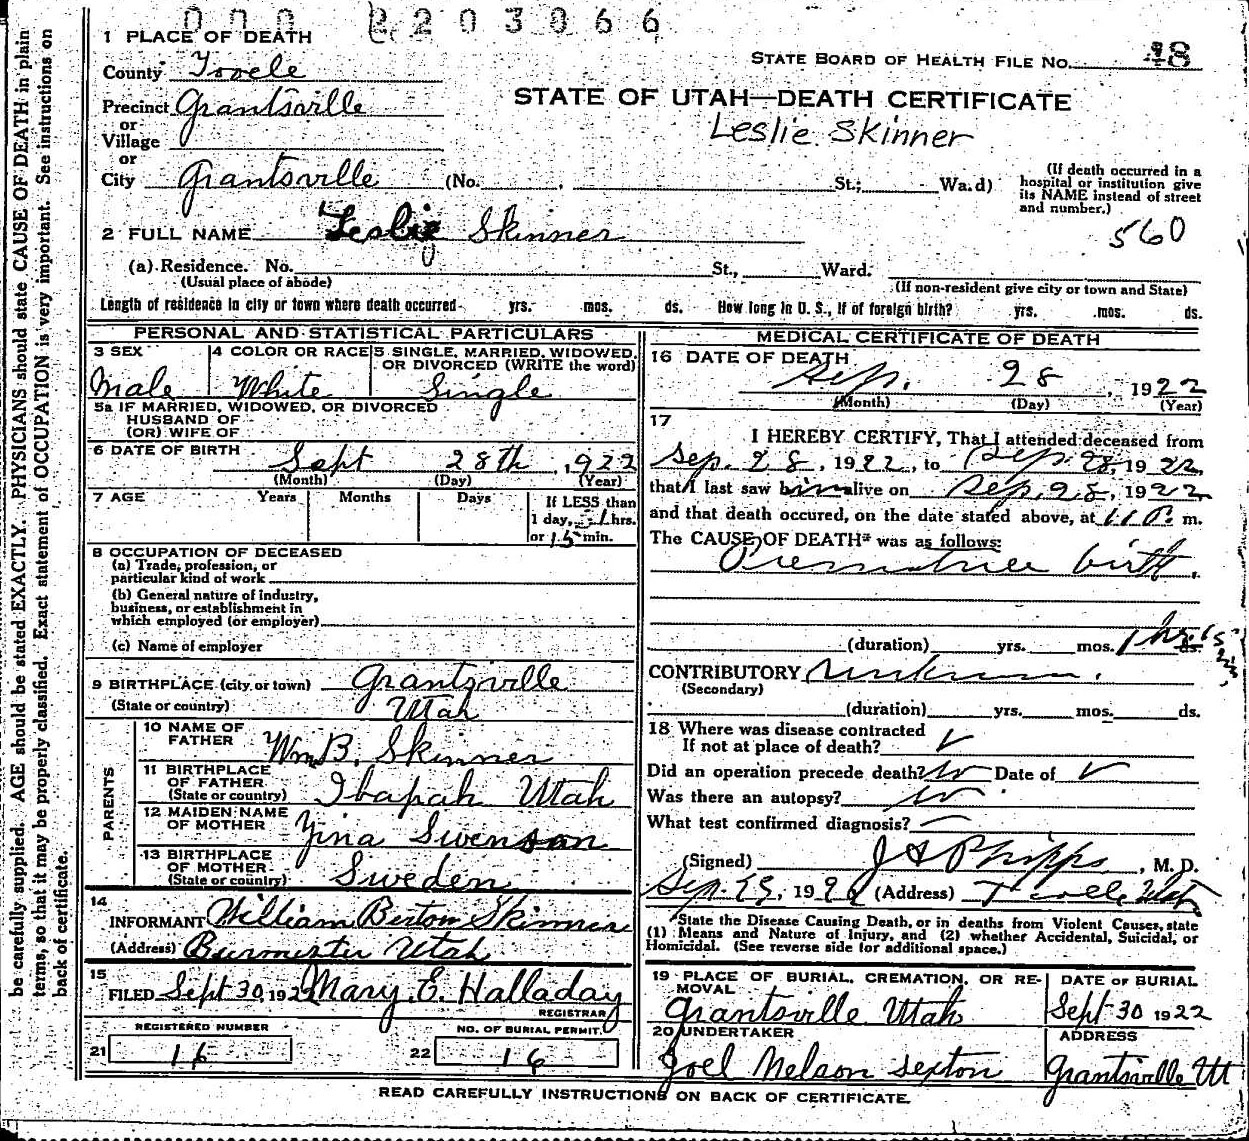 2203066
1 PLACE OF DEATH
County Tooele
STATE BOARD OF HEALTH FILE No. 48
Precinct Grantsville
or
Village
or
STATE OF UTAH—DEATH CERTIFICATE
Leslie Skinner
City Grantsville (No. St.; Wa.d)
(If death occurred in a
hospital or institution give
its NAME instead of street
and number.)
2 FULL NAME Leslie Skinner
560
(a) Residence. No. St., Ward.
(Usual place of abode)
(If non-resident give city or town and State)
Length of residence in city or town where death occurred yrs. mos. ds. How long in U. S., if of foreign birth? yrs. mos. ds.
PERSONAL AND STATISTICAL PARTICULARS
3 SEX
Male
4 COLOR OR RACE
White
5 SINGLE, MARRIED, WIDOWED,
OR DIVORCED (WRITE the word)
Single
5a IF MARRIED, WIDOWED, OR DIVORCED
HUSBAND OF
(OR) WIFE OF
6 DATE OF BIRTH Sept 28th, 1922
(Month) (Day) (Year)
7 AGE Years Months Days
If LESS than
1 day, 1 hrs.
or 15 min.
8 OCCUPATION OF DECEASED
(a) Trade, profession, or
particular kind of work
(b) General nature of industry,
business, or establishment in
which employed (or employer)
(c) Name of employer
9 BIRTHPLACE (city or town) Grantsville
(State or country) Utah
PARENTS
10 NAME OF
FATHER Wm B. Skinner
11 BIRTHPLACE
OF FATHER
(State or country) Ibapah Utah
12 MAIDEN NAME
OF MOTHER Zina Swenson
13 BIRTHPLACE
OF MOTHER
(State or country) Sweden
14
INFORMANT William Berton Skinner
(Address) Burmester Utah
15
FILED Sept 30, 1922 Mary E. Halladay
REGISTRAR
REGISTERED NUMBER
21 16
NO. OF BURIAL PERMIT.
22 16
MEDICAL CERTIFICATE OF DEATH
16 DATE OF DEATH
Sep. 28, 1922
(Month) (Day) (Year)
17
I HEREBY CERTIFY, That I attended deceased from
Sep. 28, 1922, to Sep. 28, 1922,
that I last saw him alive on Sep. 28, 1922
and that death occured, on the date stated above, at 11 P. m.
The CAUSE OF DEATH* was as follows:
Premature birth.
(duration) yrs. mos. 1 hr. 15 ds.
CONTRIBUTORY unknown.
(Secondary)
(duration) yrs. mos. ds.
18 Where was disease contracted
If not at place of death?
Did an operation precede death? no Date of
Was there an autopsy? no
What test confirmed diagnosis?
(Signed) J A Phipps, M. D.
Sep. 1922 (Address) Tooele, Utah
*State the Disease Causing Death, or in deaths from Violent Causes, state
(1) Means and Nature of Injury, and (2) whether Accidental, Suicidal, or
Homicidal. (See reverse side for additional space.)
19 PLACE OF BURIAL, CREMATION, OR RE-
MOVAL
Grantsville Utah
DATE OF BURIAL
Sept 30 1922
20 UNDERTAKER
Joel Nelson sexton
ADDRESS
Grantsville Ut
READ CAREFULLY INSTRUCTIONS ON BACK OF CERTIFICATE.
be carefully supplied. AGE should be stated EXACTLY. PHYSICIANS should state CAUSE OF DEATH in plain
terms, so that it may be properly classified. Exact statement of OCCUPATION is very important. See instructions on
back of certificate.